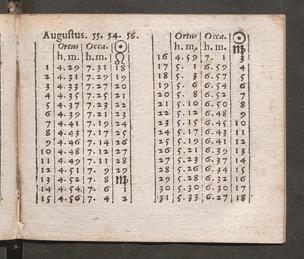 Augustus. 55. 54. 56.
Ortus Occa. ☉
h. m. h. m. ♌
1 4.29 7.31 18
2 4.31 7.29 19
3 4.33 7.27 21
4 4.35 7.25 21
5 4.37 7.23 22
6 4.39 7.21 23
7 4.41 7.19 24
8 4.43 7.17 25
9 4.46 7.14 26
10 4.48 7.12 27
11 4.49 7.11 28
12 4.51 7. 9 29
13 4.52 7. 8 ♍
14 4.54 7. 6 1
15 4.56 7. 4 2
Ortus Occa. ☉
h. m. h. m. ♍
16 4.59 7. 1 3
17 5. 1 6.59 4
18 5. 3 6.57 5
19 5. 6 6.54 6
20 5. 8 6.52 7
21 5.10 6.50 8
22 5.12 6.48 9
23 5.15 6.45 10
24 5.17 6.43 11
25 5.20 6.40 12
26 5.23 6.37 13
27 5.26 6.34 14
28 5.28 6.32 15
29 5.28 6.32 16
30 5.30 6.30 17
31 5.33 6.27 18